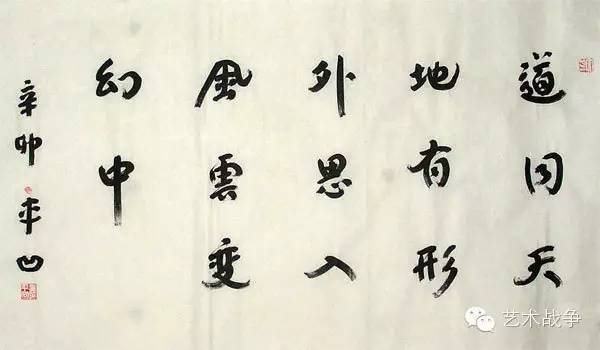 道同天
地有形
外思入
風雲变
幻中
辛卯平凹
艺术战争